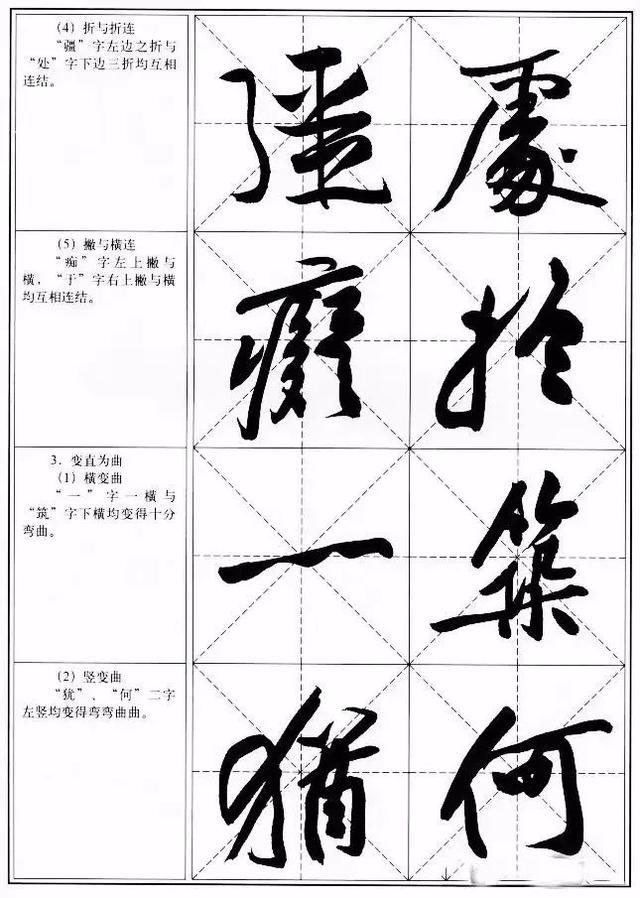 (4) 折与折连
“疆”字左边之折与
“处”字下边三折均互相
连结。
疆 處
(5) 撇与横连
“痴”字左上撇与
横，“于”字右上撇与横
均互相连结。
癡 於
3. 变直为曲
(1) 横变曲
“一”字一横与
“筑”字下横均变得十分
弯曲。
一 築
(2) 竖变曲
“犹”、“何”二字
左竖均变得弯弯曲曲。
猶 何